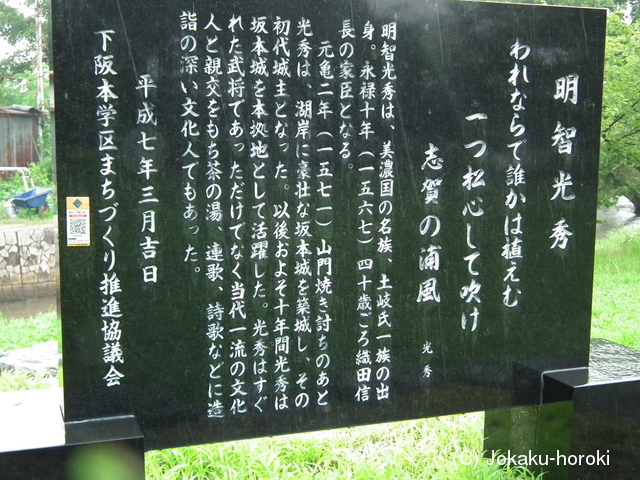 明智光秀
われならで誰かは植えむ
一つ松心して吹け
志賀の浦風
光秀
明智光秀は、美濃国の名族、土岐氏一族の出
身。永禄十年（一五六七）四十歳ごろ織田信
長の家臣となる。
元亀二年（一五七一）山門焼き討ちのあと
光秀は、湖岸に豪壮な坂本城を築城し、その
初代城主となった。以後およそ十年間光秀は
坂本城を本拠地として活躍した。光秀はすぐ
れた武将であっただけでなく当代一流の文化
人と親交をもち茶の湯、連歌、詩歌などに造
詣の深い文化人でもあった。
平成七年三月吉日
下阪本学区まちづくり推進協議会
(C) Jokaku-horoki